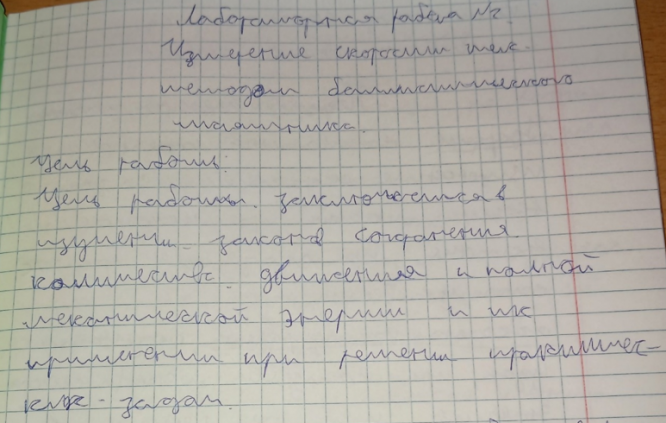 Лабораторная работа №2.
Измерение скорости тел
методом баллистического
маятника.
Цель работы:
Цель работы заключается в
изучении закона сохранения
количества движения и полной
механической энергии и их
применении при решении практичес-
ких задач.